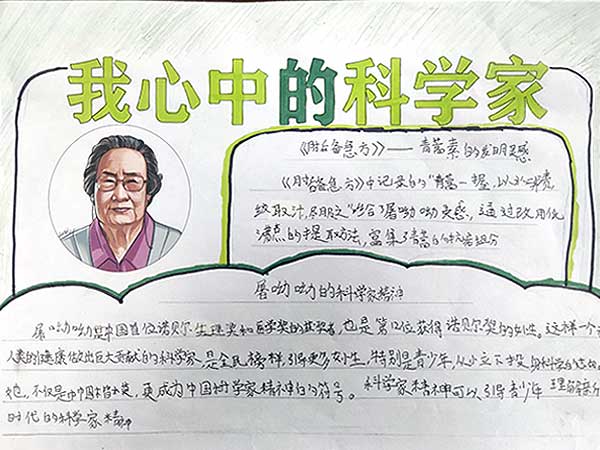 我心中的科学家
《肘后备急方》——青蒿素的发明灵感
《肘后备急方》中记录的"青蒿一握，以水
绞取汁，尽服之"给了屠呦呦灵感，通过改用低
沸点的提取方法，富集了青蒿的组分
屠呦呦的科学家精神
屠呦呦是中国首位诺贝尔生理奖和医学奖的获奖者，也是第12位获得诺贝尔奖的女性。这样一个
人类的健康做出巨大贡献的科学家，是全民榜样，引导更多女生，特别是青少年，从小立下投
她，不仅是中国，更成为中国科学家精神的符号。科学家精神可以引导青少年理解
时代的科学家精神